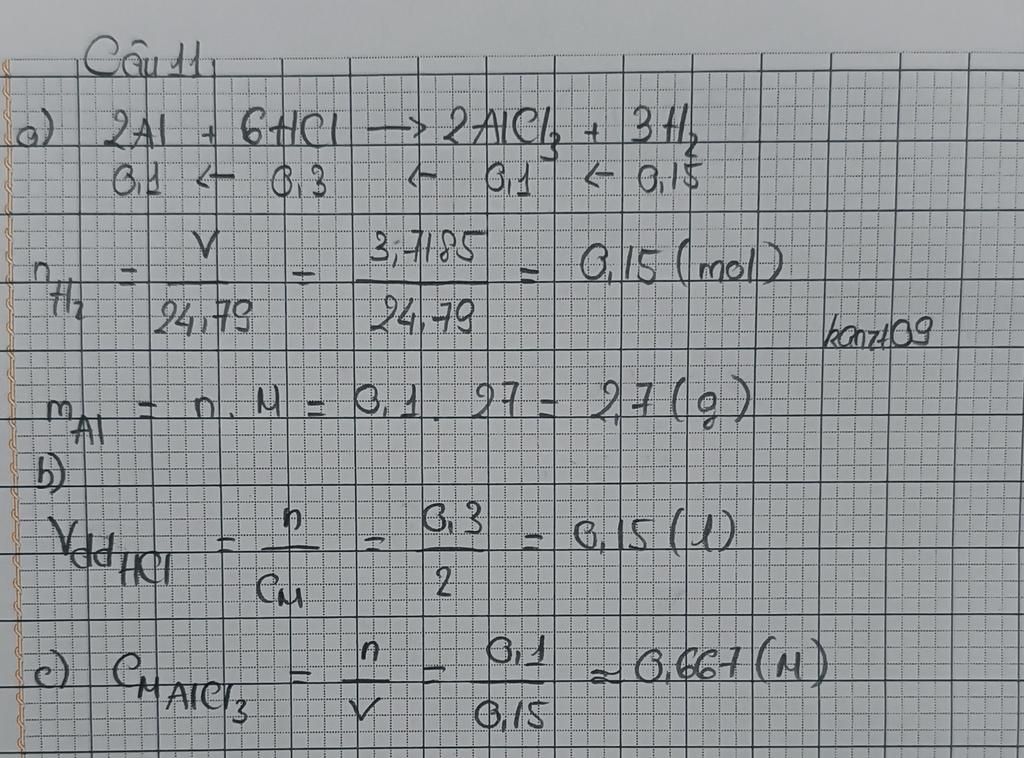 Câu 11
a) 2Al + 6HCl → 2AlCl₃ + 3H₂
0,1 ← 0,3 ← 0,1 ← 0,15
n_H₂ = V/24,79 = 3,7185/24,79 = 0,15 (mol)
kanzt09
m_Al = n . M = 0,1 . 27 = 2,7 (g)
b)
V_ddHCl = n/C_M = 0,3/2 = 0,15 (l)
c) C_M AlCl₃ = n/V = 0,1/0,15 ≈ 0,667 (M)